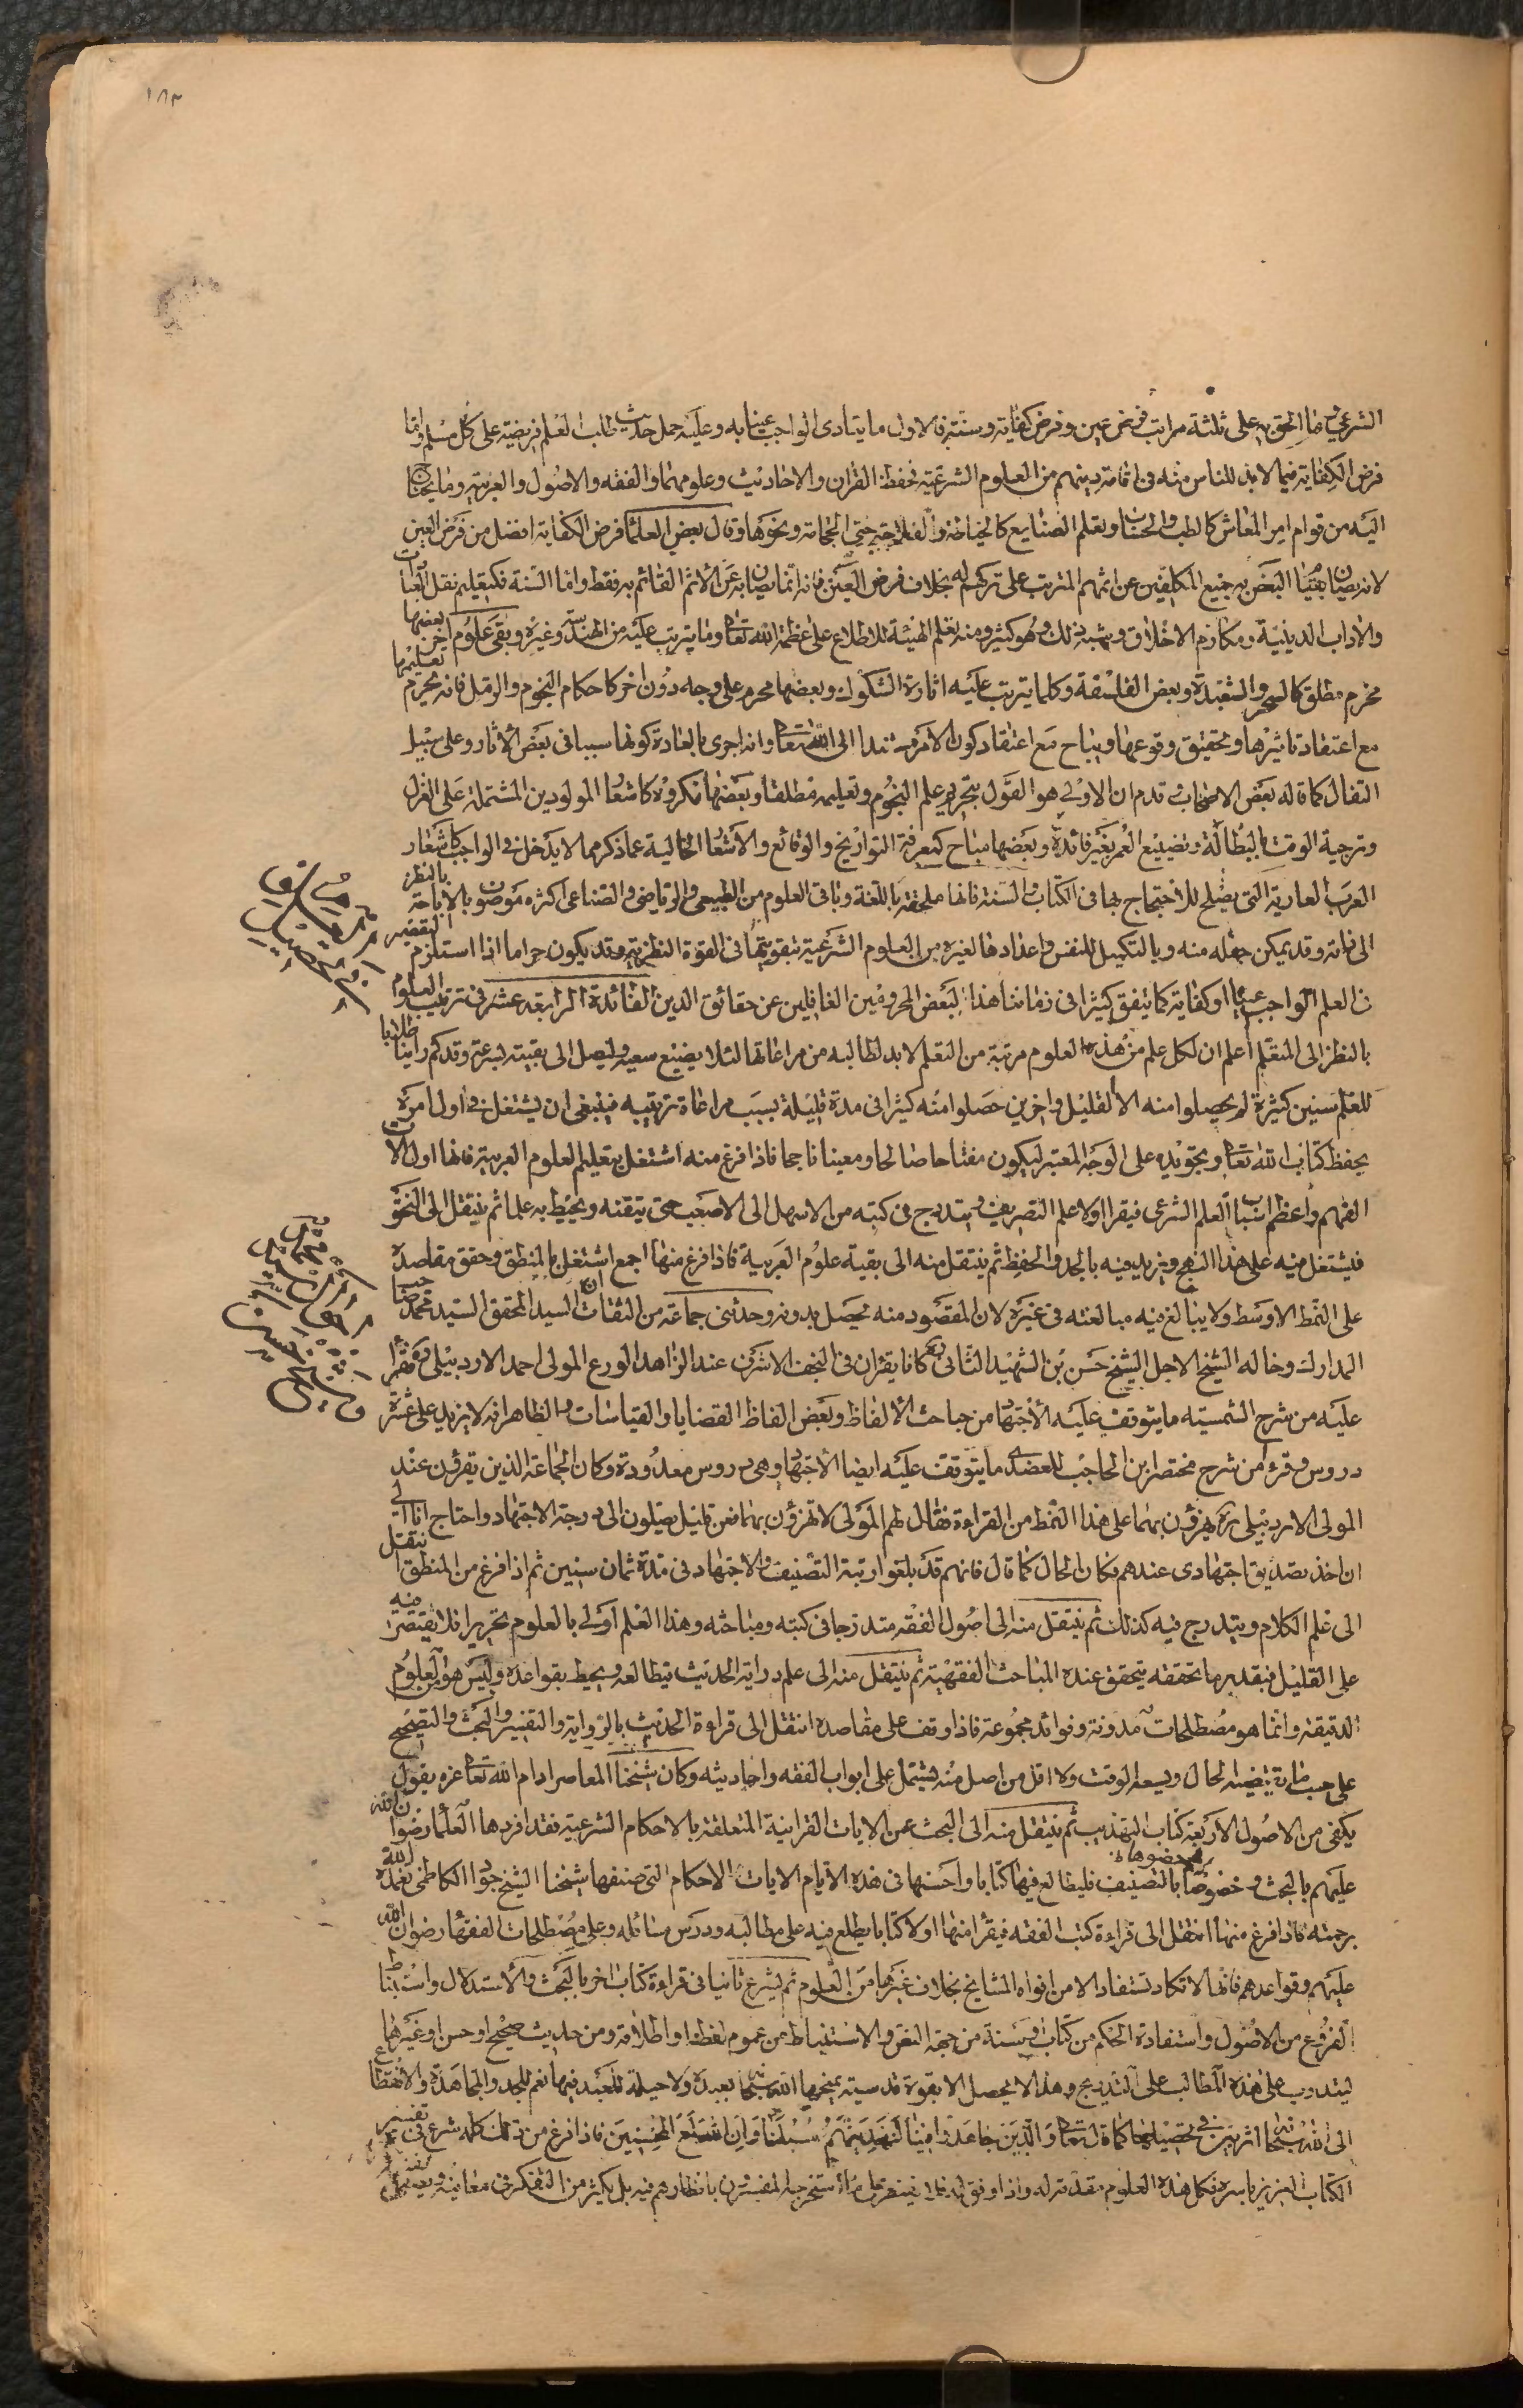 ١٨٣
الشرعي وما الحق به على ثلثة مراتب فرض عين وفرض كفاية وسنة فالاول ما يتأدى الواجب عينا به وعليه حمل حديث طلب العلم فريضة على كل مسلم واما
فرض الكفاية فيما لا بد للناس منه في اقامة دينهم من العلوم الشرعية كحفظ القران والاحاديث وعلومهما والفقه والاصول والعربية وما يحتاج
اليه من قوام امر المعاش كالطب والحساب وتعلم الصنايع كالخياطة والفلاحة حتى الحجامة ونحوها وقال بعض العلماء فرض الكفاية افضل من فرض العين
لانه يصان بقيام البعض به جميع المكلفين عن اثمهم المترتب على تركهم له بخلاف فرض العين فانه انما يصان به عن الاثم القائم به فقط واما السنة فكتعليم نقل العبادات
والاداب الدينية ومكارم الاخلاق وشبه ذلك وهو كثير ومنه تعلم الهيئة للاطلاع على عظمة الله تعالى وما يترتب عليه من الهندسة وغيره وبقى علوم اخر بعضها
محرم مطلق كالسحر والشعبذة وبعض الفلسفة وكلما يترتب عليه اثارة الشكوك وبعضها محرم على وجه دون اخر كاحكام النجوم والرمل فانه يحرم تعليمها
مع اعتقاد تاثيرها وتحقيق وقوعها ويباح مع اعتقاد كون الامر مستندا الى الله تعالى وانه اجرى بالعادة كونها سببا في بعض الاثار وعلى سبيل
التفأل كما قاله بعض الاصحاب وقد تقدم ان الاولى هو القول بتحريم علم النجوم وتعليمه مطلقا وبعضها مكروه كاشعار المولودين المشتملة على الغزل
وتزجية الوقت بالبطالة وتضييع العمر بغير فائدة وبعضها مباح كمعرفة التواريخ والوقائع والاشعار الخالية عما ذكر مما لا يدخل في الواجب كاشعار
العرب العاربة التي يصلح للاحتجاج بها في الكتاب والسنة فانها ملحقة باللغة وباقى العلوم من الطبيعى والرياضى والصناعى اكثره موصوف بالاباحة بالنظر
الى ذاته وقد يمكن جعله منه وبالتكميل للنفس واعدادها لغيره من العلوم الشرعية بتقويتها في القوة النظرية وقد يكون حراما اذا استلزم التقصير
في العلم الواجب عينا او كفاية كما يتفق كثيرا في زماننا هذا لبعض المحرومين الغافلين عن حقائق الدين الفائدة الرابعة عشر في ترتيب العلوم
بالنظر الى المتعلم اعلم ان لكل علم من هذه العلوم مرتبة من التعلم لا بد لطالبه من مراعاتها لئلا يضيع سعيه وليصل الى بغيته بسرعة وقد كم راينا طلابا
للعلم سنين كثيرة لم يحصلوا منه الا القليل واخرين حصلوا منه كثيرا في مدة قليلة بسبب مراعاة ترتيبه فينبغى ان يشتغل في اول امره
بحفظ كتاب الله تعالى وتجويده على الوجه المعتبر ليكون مفتاحا صالحا ومعينا ناجحا فاذا فرغ منه اشتغل بتعليم العلوم العربية فانها اول الات
الفهم واعظم اسباب العلم الشرعى فيقرا اولا علم التصريف ويتدرج في كتبه من الاسهل الى الاصعب حتى يتقنه ويحيط به علما ثم ينتقل الى النحو
فيشتغل فيه على هذا النهج ويزيد فيه بالجد والحفظ ثم ينتقل منه الى بقية علوم العربية فاذا فرغ منها اجمع اشتغل بالمنطق وحقق مقاصده
على النمط الاوسط ولا يبالغ فيه مبالغته في غيره لان المقصود منه يحصل بدونه وحدثنى جماعة من الثقات ان السيد المحقق السيد محمد صاحب
المدارك وخاله الشيخ الاجل الشيخ حسن بن الشهيد الثانى كانا يقران في النجف الاشرف عند الزاهد الورع المولى احمد الاردبيلى فقرا
عليه من شرح الشمسية ما يتوقف عليه الاجتهاد من مباحث الالفاظ وبعض الفاظ القضايا والقياسات والظاهر انه لا يزيد على عشرة
دروس وقرءا من شرح مختصر ابن الحاجب للعضدى ما يتوقف عليه ايضا الاجتهاد وهي دروس معدودة وكان الجماعة الذين يقرؤن عند
المولى الاردبيلى ره يهزؤن بهما على هذا النمط من القراءة فقال لهم المولى لا تهزؤن بهما فعن قليل يصلون الى درجة الاجتهاد واحتاج انا الى
ان اخذ تصديق اجتهادى عندهم فكان الحال كما قال فانهم قد بلغوا رتبة التصنيف والاجتهاد في مدة ثمان سنين ثم اذا فرغ من المنطق انتقل
الى علم الكلام ويتدرج فيه كذلك ثم ينتقل منه الى اصول الفقه متدرجا في كتبه ومباحثه وهذا العلم اولى بالعلوم بتحريره فلا يقتصر منه
على القليل فبقدر ما تحققه يتحقق عنده المباحث الفقهية ثم ينتقل منه الى علم دراية الحديث فيطالعه ويحيط بقواعده وليس هو من العلوم
الدقيقة وانما هو مصطلحات مدونة وفوائد مجموعة فاذا وقف على مقاصده انتقل الى قراءة الحديث بالرواية والتفسير والبحث والتصحيح
على حسب ما يقتضيه الحال ويسعه الوقت ولا اقل من اصل منه يشتمل على ابواب الفقه واحاديثه وكان شيخنا المعاصر ادام الله تعالى عزه يقول
يكفى من الاصول الاربعة كتاب التهذيب ثم ينتقل منه الى البحث عن الايات القرانية المتعلقة بالاحكام الشرعية فقد افردها العلماء رضوان الله
عليهم بالبحث وخصوها بالتصنيف فليطالع فيها كتابا واحسنها في هذه الايام الايات الاحكام التى صنفها شيخنا الشيخ جواد الكاظمى تغمده الله
برحمته فاذا فرغ منها انتقل الى قراءة كتب الفقه فيقرا منها اولا كتابا يطلع فيه على مطالبه ودرس مسائله وعلى مصطلحات الفقهاء رضوان الله
عليهم وقواعدهم فانها لا تكاد تستفاد الا من افواه المشايخ بخلاف غيرها من العلوم ثم يشرع ثانيا في قراءة كتاب اخر بالبحث والاستدلال واستنباط
الفروع من الاصول واستفادة الحكم من كتاب وسنة من جهة النص والاستنباط من عموم لفظ او اطلاقه ومن حديث صحيح او حسن او غيرهما
ليتدرب على هذه المطالب على التدريج وهذا لا يحصل الا بقوة قدسية يمنحها الله سبحانه بعبده ولا حيلة للعبد فيها نعم للجد والمجاهدة والانقطاع
الى الله سبحانه اثر بين في تحصيلها كما قال تعالى والذين جاهدوا فينا لنهدينهم سبلنا وان الله لمع المحسنين فاذا فرغ من ذلك كله شرع في تفسير
الكتاب العزيز باسره فكل هذه العلوم مقدمة له واذا وفق له فلا يقتصر على ما استخرجه المفسرون بانظارهم فيه بل يكثر من التفكر في معانيه